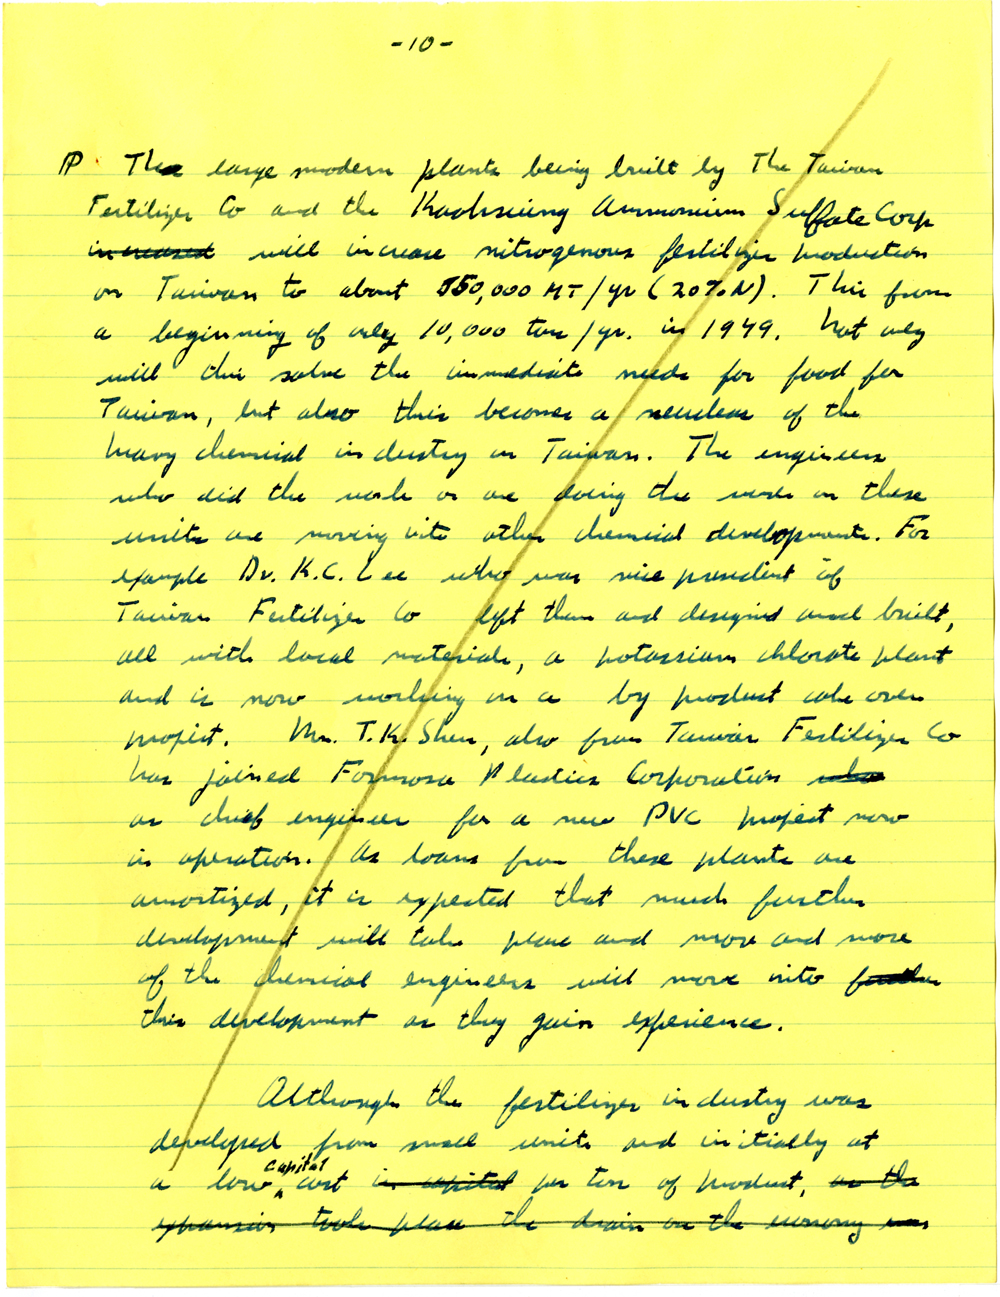 -10-
¶ The large modern plants being built by The Taiwan
Fertilizer Co and the Kaohsiung Ammonium Sulfate Corp
increased will increase nitrogenous fertilizer production
on Taiwan to about 550,000 MT/yr (20% N). This from
a beginning of only 10,000 tons/yr. in 1949. Not only
will this solve the immediate needs for food for
Taiwan, but also this becomes a neucleas of the
heavy chemical industry on Taiwan. The engineers
who did the work or are doing the work on these
units are moving into other chemical developments. For
example Dr. K.C. Lee who was vice president of
Taiwan Fertilizer Co left them and designed and built,
all with local materials, a potassium chlorate plant
and is now working on a by product coke oven
project. Mr. T.K. Shen, also from Taiwan Fertilizer Co
has joined Formosa Plastics Corporation who
as chief engineer for a new PVC project now
in operation. As loans from these plants are
amortized, it is expected that much further
development will take place and more and more
of the chemical engineers will move into further
this development as they gain experience.
Although the fertilizer industry was
developed from small units and initially at
a low capital cost in capital per ton of product, as the
expansion took place the drain on the economy was